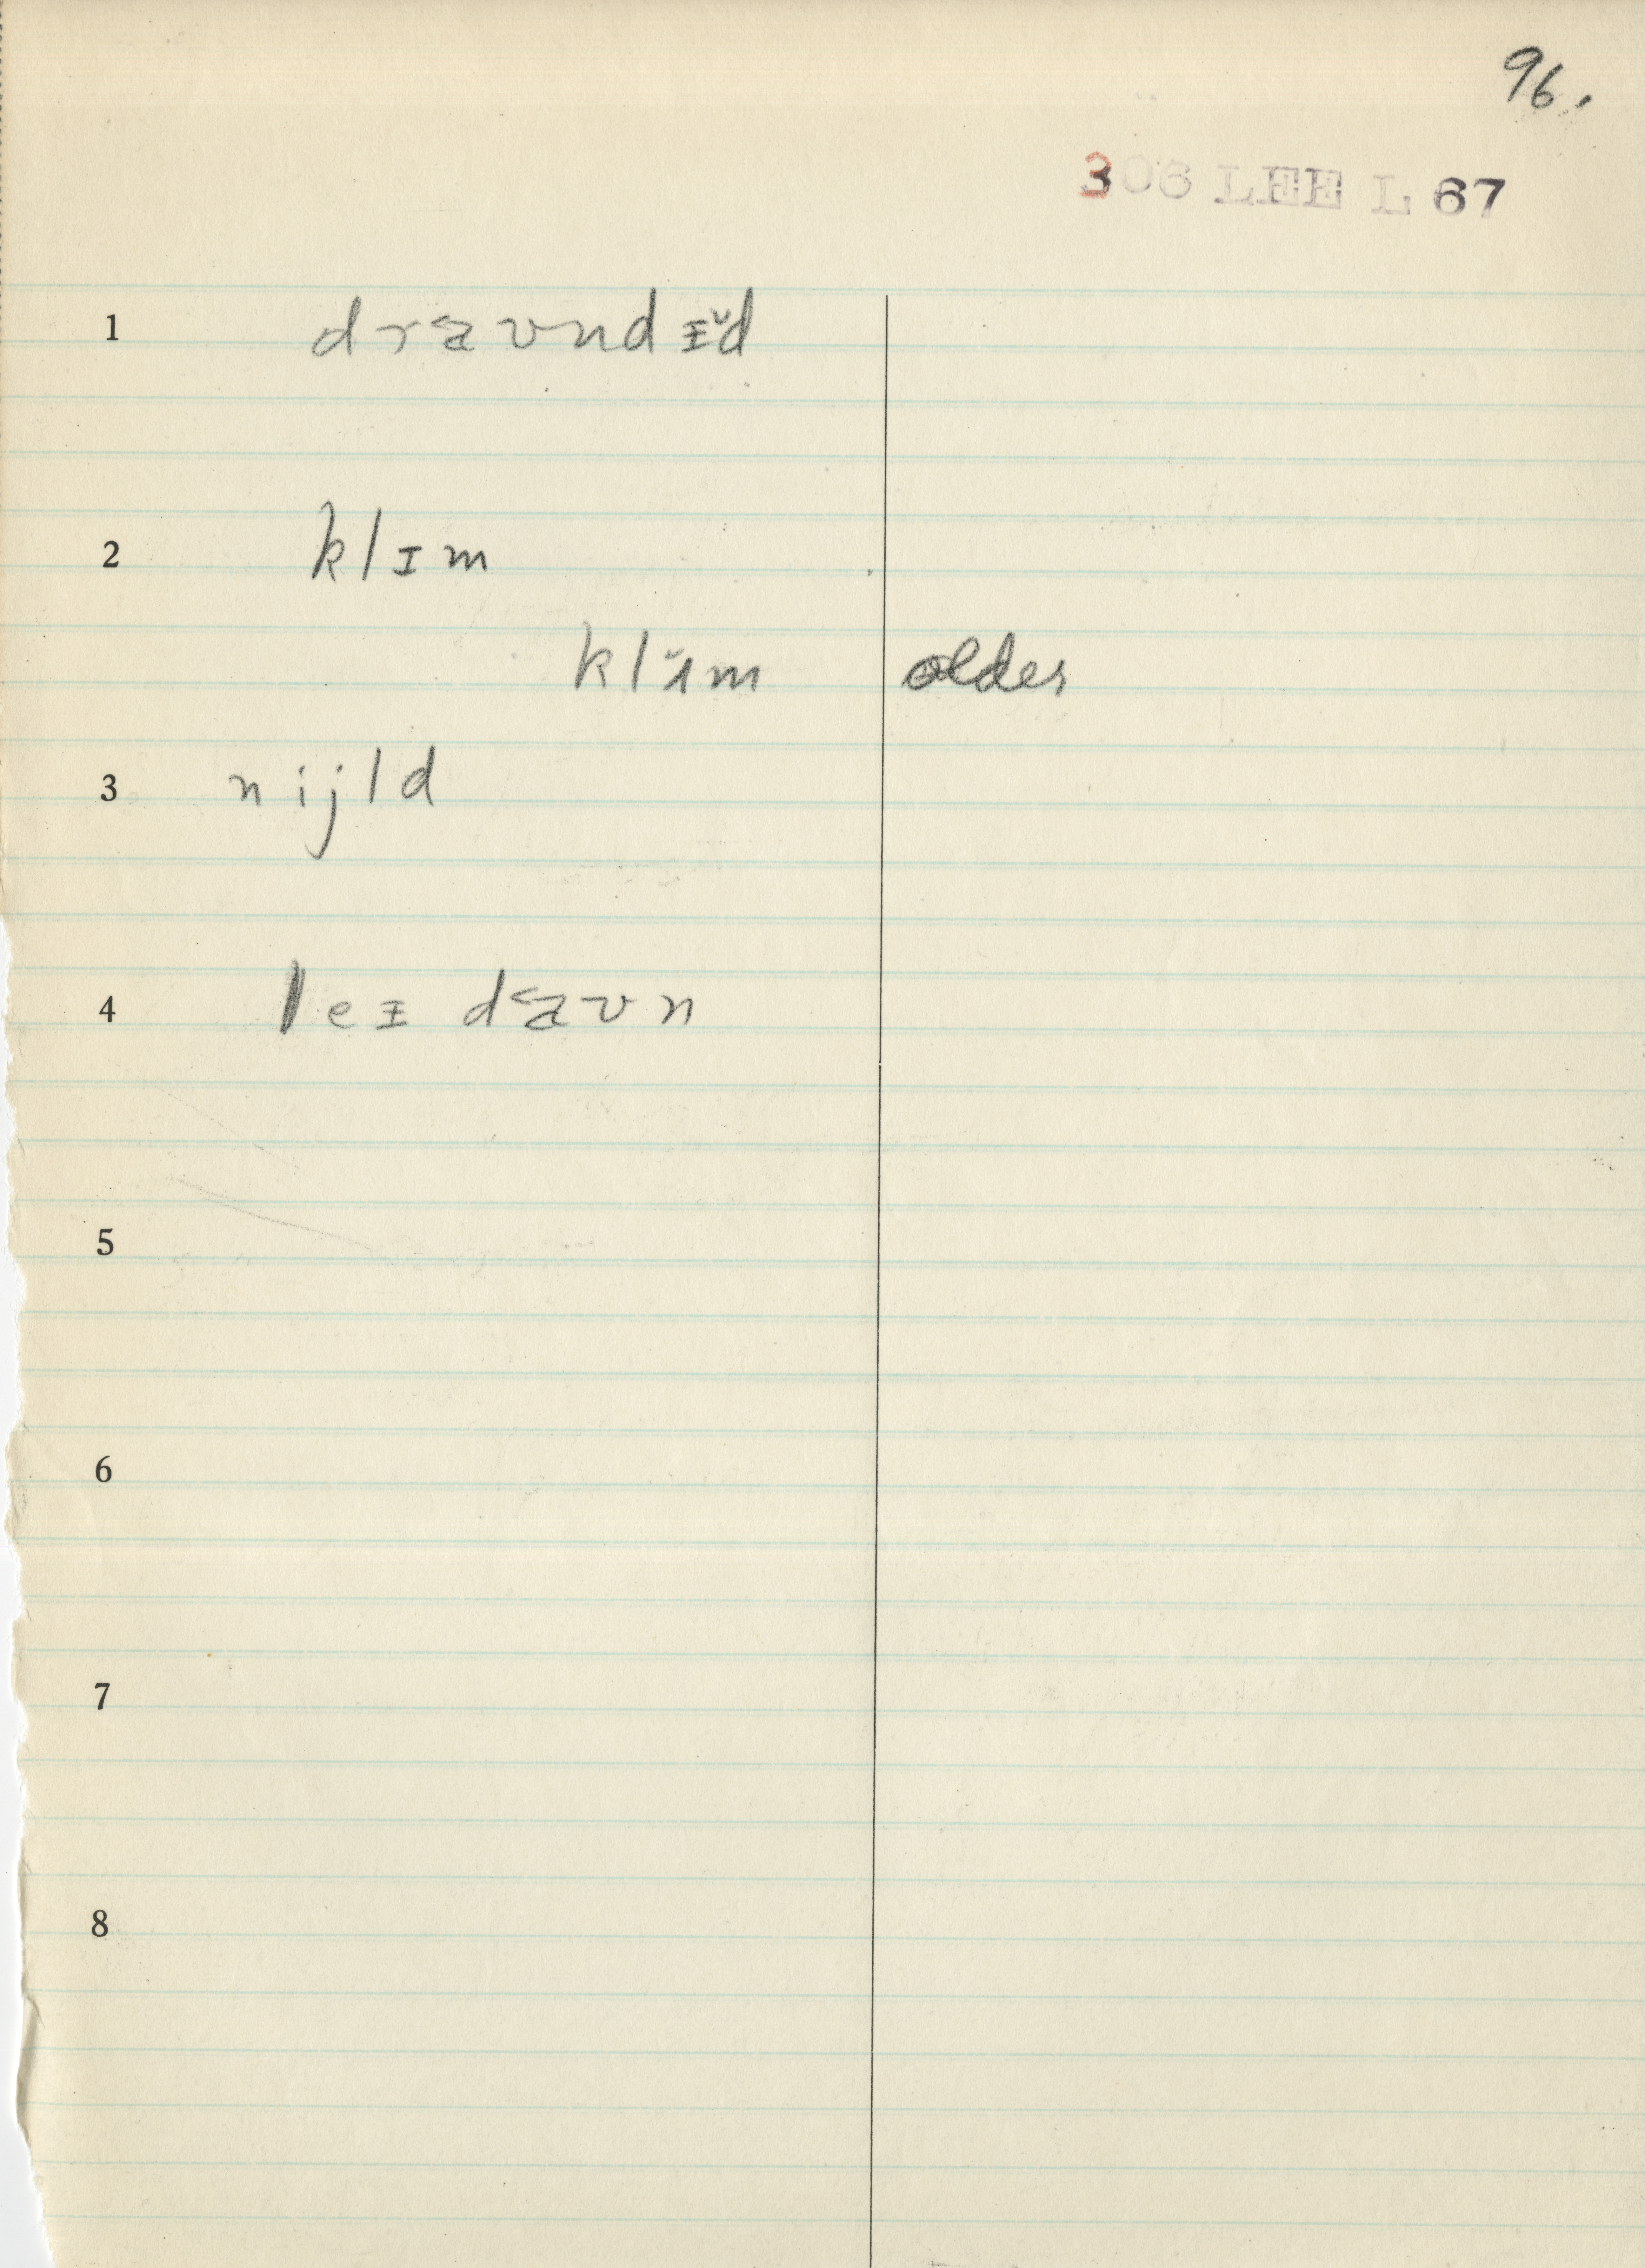 96.
306 LEE L 67
1 draʊndɪ̆d
2 klɪm
klɨ̆m older
3 nijld
4 leɪ daʊn
5
6
7
8